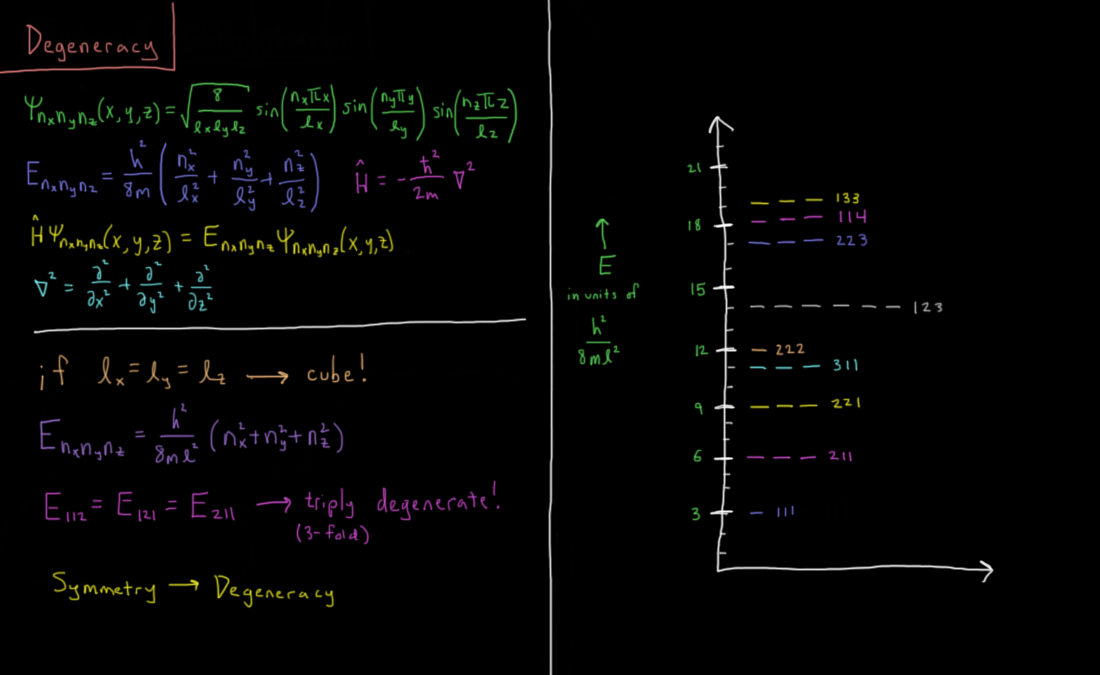 Degeneracy
Ψₙₓₙᵧₙ_z(x,y,z) = √(8/(lₓl_yl_z)) sin(nₓπx/lₓ) sin(n_yπy/l_y) sin(n_zπz/l_z)
E_nₓn_yn_z = h²/8m (nₓ²/lₓ² + n_y²/l_y² + n_z²/l_z²) Ĥ = -ħ²/2m ∇²
ĤΨ_nₓn_yn_z(x,y,z) = E_nₓn_yn_z Ψ_nₓn_yn_z(x,y,z)
∇² = ∂²/∂x² + ∂²/∂y² + ∂²/∂z²
if lₓ = l_y = l_z → cube!
E_nₓn_yn_z = h²/8ml² (nₓ²+n_y²+n_z²)
E₁₁₂ = E₁₂₁ = E₂₁₁ → triply degenerate!
(3-fold)
Symmetry → Degeneracy
↑
E
in units of
h²/8ml²
21
133
114
18
223
15
123
12
222
311
9
221
6
211
3
111